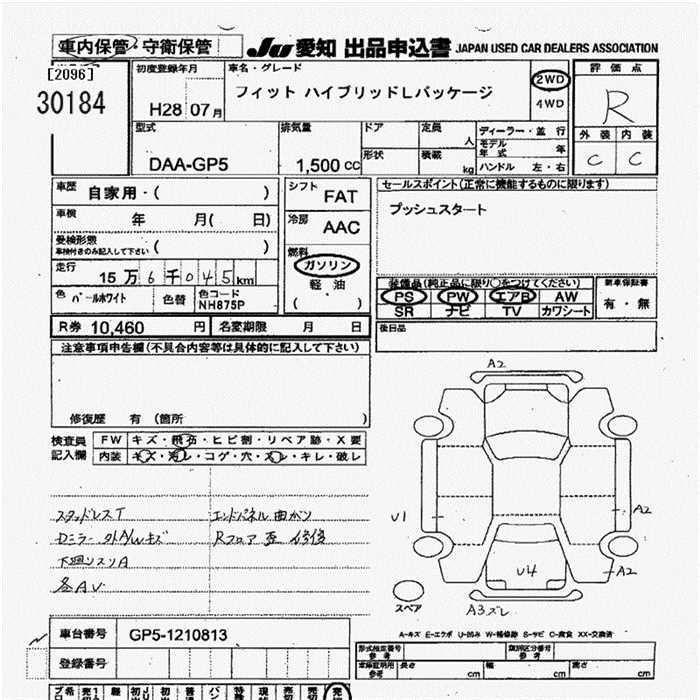 車内保管・守衛保管
JU 愛知 出品申込書 JAPAN USED CAR DEALERS ASSOCIATION
[2096]
30184
初度登録年月
H28 07月
車名・グレード
フィット ハイブリッドLパッケージ
2WD
4WD
評価点
R
外装 内装
C C
型式
DAA-GP5
排気量
1,500 cc
ドア
定員
人
形状
積載
kg
ディーラー・並行
モデル年式 年
ハンドル 左・右
車歴 自家用・( )
車検 年 月( 日)
受検形態
車検付きのみ記入して下さい ( )
走行 15万6千045km
色 パールホワイト 色替 色コード NH875P
シフト FAT
冷房 AAC
燃料
ガソリン
軽油
( )
セールスポイント(正常に機能するものに限ります)
プッシュスタート
装備品(純正品に限り○をつけてください)
PS PW エアB AW
SR ナビ TV カワシート
新車保証書
有・無
R券 10,460 円 名変期限 月 日
後日品
注意事項申告欄(不具合内容等は具体的に記入して下さい)
修復歴 有 (箇所 )
検査員記入欄
FW キズ・飛石・ヒビ割・リペア跡・X要
内装 キズ・汚レ・コゲ・穴・スレ・キレ・破レ
スタッドレスT
エンドパネル曲がり
Dミラー外Awキズ
Rフロア歪 修復
下廻リスリA
各AU
A2
U1
A2
A2
U4
A3ズレ
スペア
A-キズ E-エクボ U-凹み W-補修跡 S-サビ C-腐食 XX-交換済
車台番号 GP5-1210813
登録番号
形式指定番号
参考
類別区分番号
参考
車検証明用
参考
長さ cm 幅 cm 高さ cm